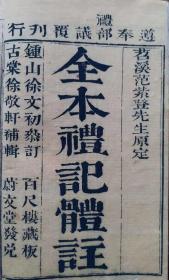 遵奉禮部議覆刊行
苕溪范紫登先生原定
全本禮記體註
鍾山徐文初叅訂 百尺樓藏板
古棠徐敬軒補輯 蔚文堂發兌